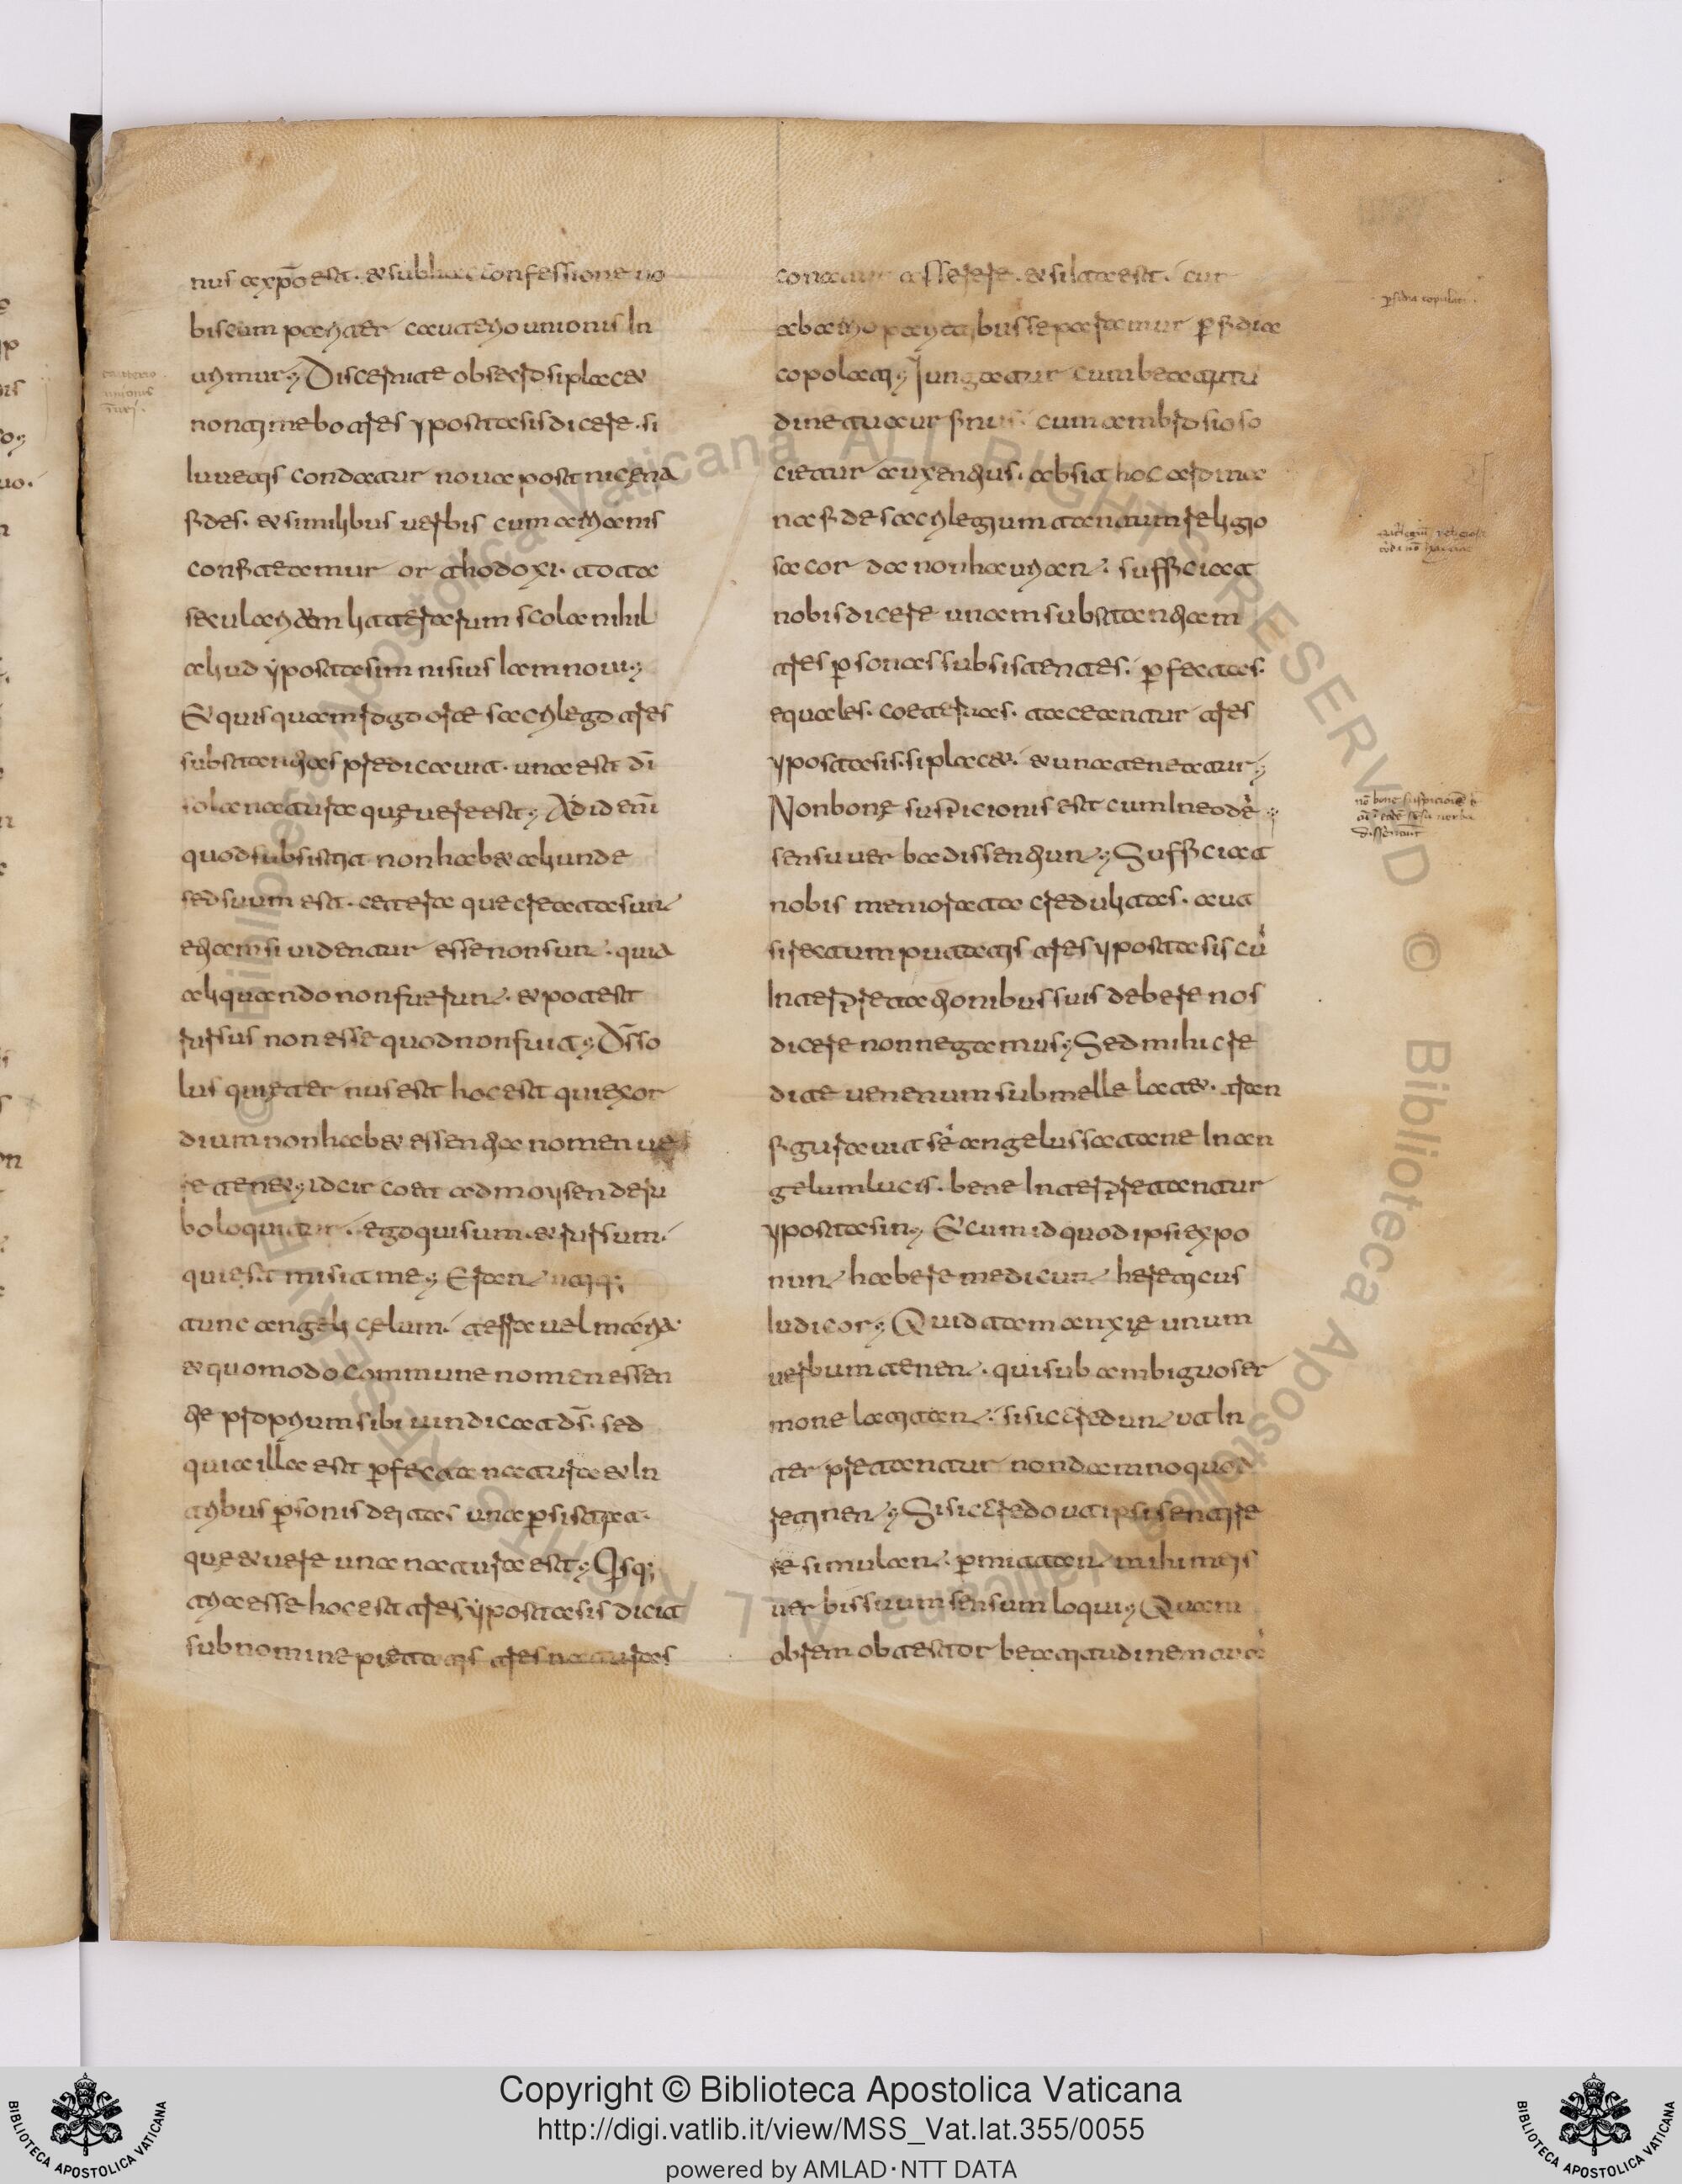 nus a xp̄o est. & sub hac confessione uo
bis cum pariter cauterio unionis In
urimur; Discernite obsecro si placet &
non timebo tres ypostasis dicere. si
iuuetis condatur noua post nicena
fides. & similibus uerbis cum arrianis
confiteamur orthodoxi. tota
secularium litterarum scola nihil
aliud ypostasim nisi usiam noui;
Et quisquam rogo ore sacrilego tres
substantias predicauit. una est dī
sola natura que uere est; Ad id enī
quod subsistit non habet aliunde
sed suum est. cetera que creata sunt
etiam si uidentur esse non sunt. quia
aliquando non fuerunt. & potest
rursus non esse quod non fuit; Ds̄ so
lus qui eternus est hoc est qui exor
dium non habet essentiae nomen ue
re tenet; idcirco et ad moysen de ru
bo loquitur. ego qui sum. & rursum.
qui est misit me; Erant utiq;
tunc angeli celum. terra uel maria.
& quomodo commune nomen essen
tie proprium sibi uindicat ds̄. sed
quia illa est perfecta natura & In
tribus p̱sonis deitatis una p̱sistit.
que & uere una natura est; Qsq;
tria esse hoc est tres ypostasis dicit
sub nomine pietatis tres naturas
conatur asserere. & si ita est. cur
ab arrio parietibus separamur p̱fidia
copolati; Iungatur cum beatitu
dine tua ursinus. cum ambrosio so
cietur auxentius. absit hoc a roma
na fide sacrilegium tantum religio
sa corda non hauriant. sufficiat
nobis dicere unam substantiam
tres p̱sonas subsistentes. p̱fectas.
equales. coeternas. taceantur tres
ypostasis. si placet. & una teneatur;
Non bone suspicionis est cum In eodē
sensu uerba dissentiunt; Sufficiat
nobis memorata credulitas. aut
si rectum putatis tres ypostasis cū
Interpretationibus suis debere nos
dicere non negamus; Sed mihi cre
dite uenenum sub melle latet. tran
sfigurauit sē angelus satane In an
gelum lucis. bene Interpretantur
ypostasin; Et cum id quod ipsi expo
nunt habere me dicunt hereticus
iudicor; Quid tam anxie unum
uerbum tenent. qui sub ambiguo ser
mone latitant. si sic credunt ut In
terpretantur non damno quod
retinent; Si sic credo ut ipsi sentire
se simulant. p̱mittant mihi meis
uerbis suum sensum loqui; Quam
obrem obtestor beatitudinem tuā